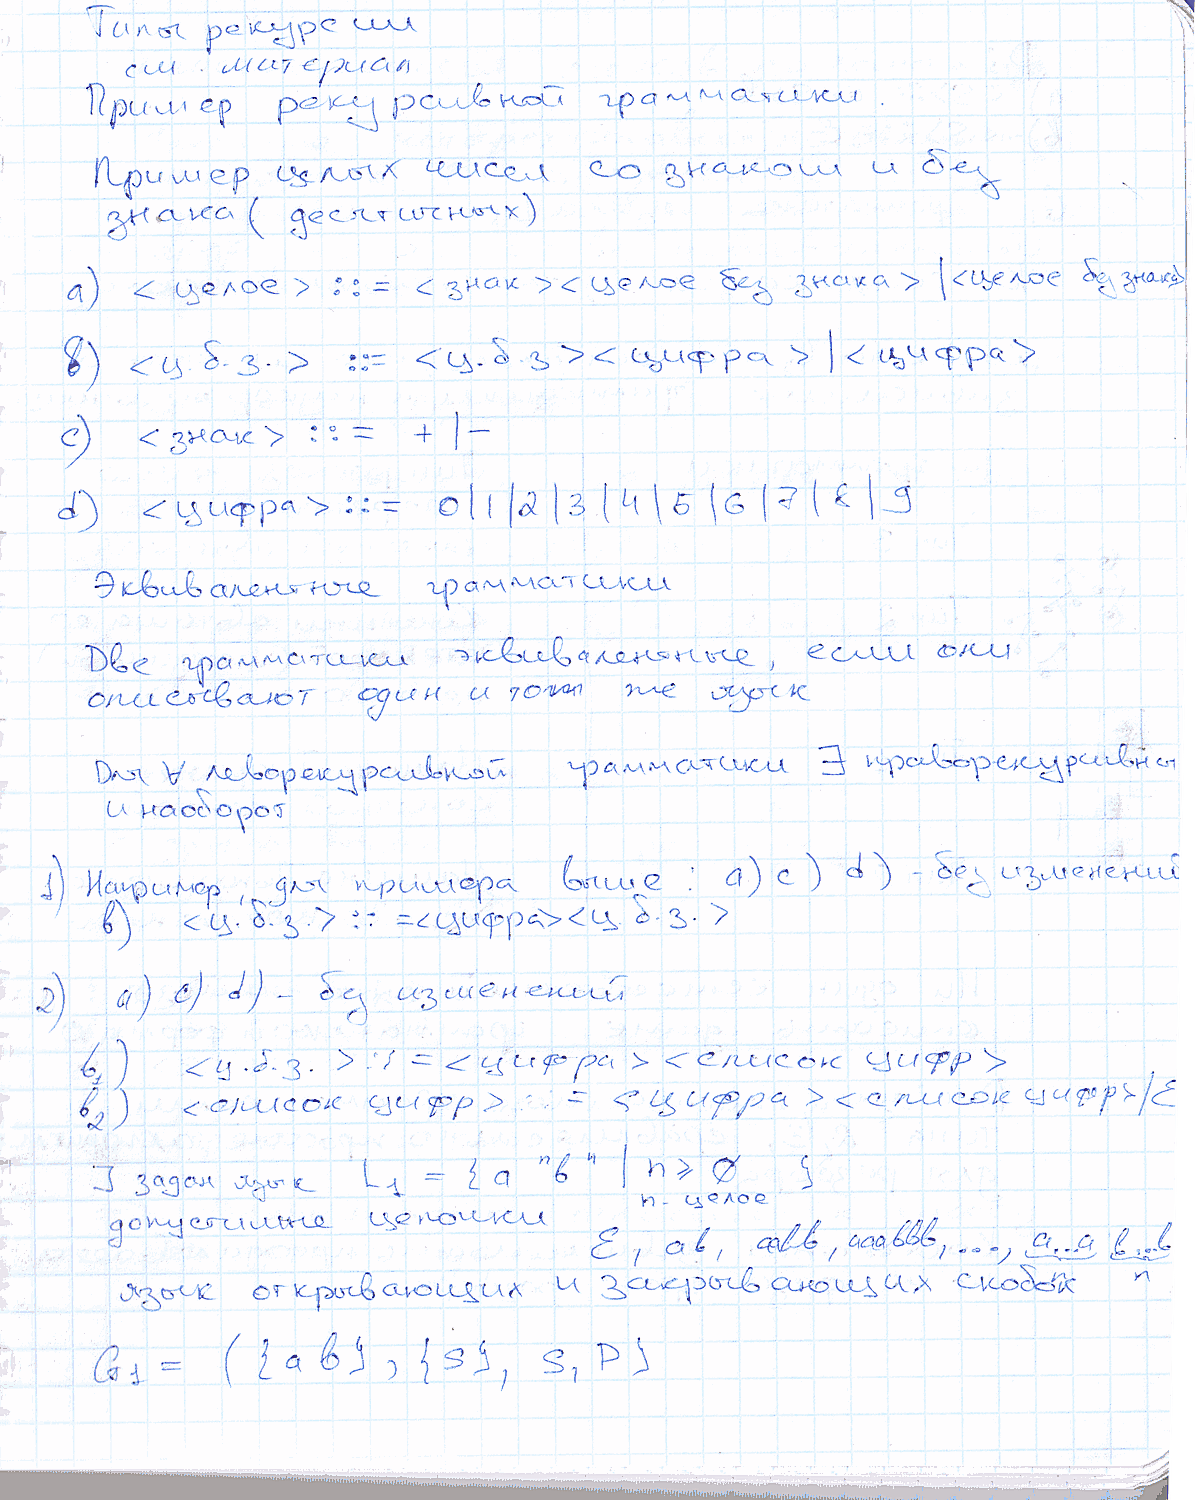 Типы рекурсии
см. материал
Пример рекурсивной грамматики.
Пример целых чисел со знаком и без
знака (десятичных)
a) <целое> ::= <знак><целое без знака> |<целое без знака>
в) <ц.б.з.> ::= <ц.б.з><цифра> |<цифра>
c) <знак> ::= + | -
d) <цифра> ::= 0|1|2|3|4|5|6|7|8|9
Эквивалентные грамматики
Две грамматики эквивалентные, если они
описывают один и тот же язык
Для ∀ леворекурсивной грамматики ∃ праворекурсивна
и наоборот
1) Например, для примера выше: a) c) d) - без изменений
в) <ц.б.з.> ::= <цифра><ц.б.з.>
2) a) c) d) - без изменений
в1) <ц.б.з.> ::= <цифра><список цифр>
в2) <список цифр> ::= <цифра><список цифр>/ε
] задан язык L1 = {a^n b^n | n ≥ 0 }
n - целое
допустимые цепочки
ε, ab, aabb, aaabbb, ..., a...a b...b
n
язык открывающих и закрывающих скобок
G1 = ({a b}, {S}, S, P}